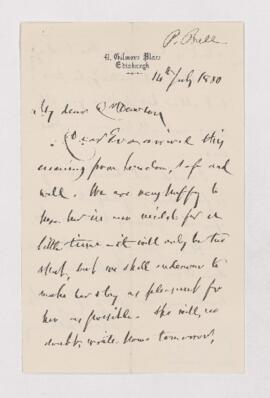 P. Bell
41. Gilmore Place
Edinburgh
14th July 1880
My dear Dr Dawson,
Eva arrived this
evening from London, safe and
well. We are very happy to
have her in our midst for a
little time - it will only be too
short, but we shall endeavour to
make her stay as pleasant for
her as possible. She will, no
doubt, write home tomorrow,